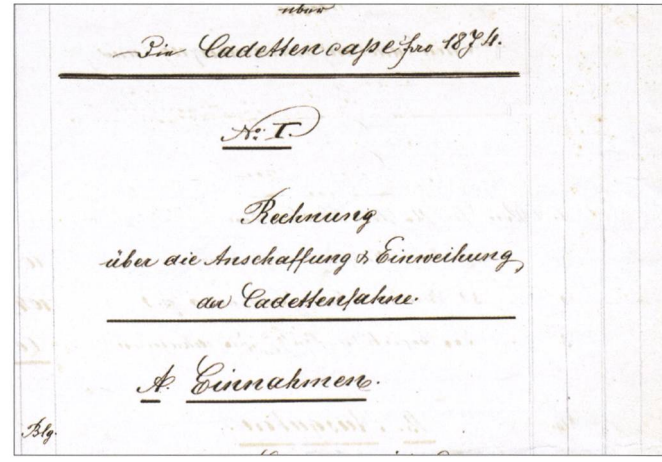 über
Die Cadettencasse pro 1874.
No: I.
Rechnung
über die Anschaffung & Einweihung
der Cadettenfahne.
A. Einnahmen.
Blg.